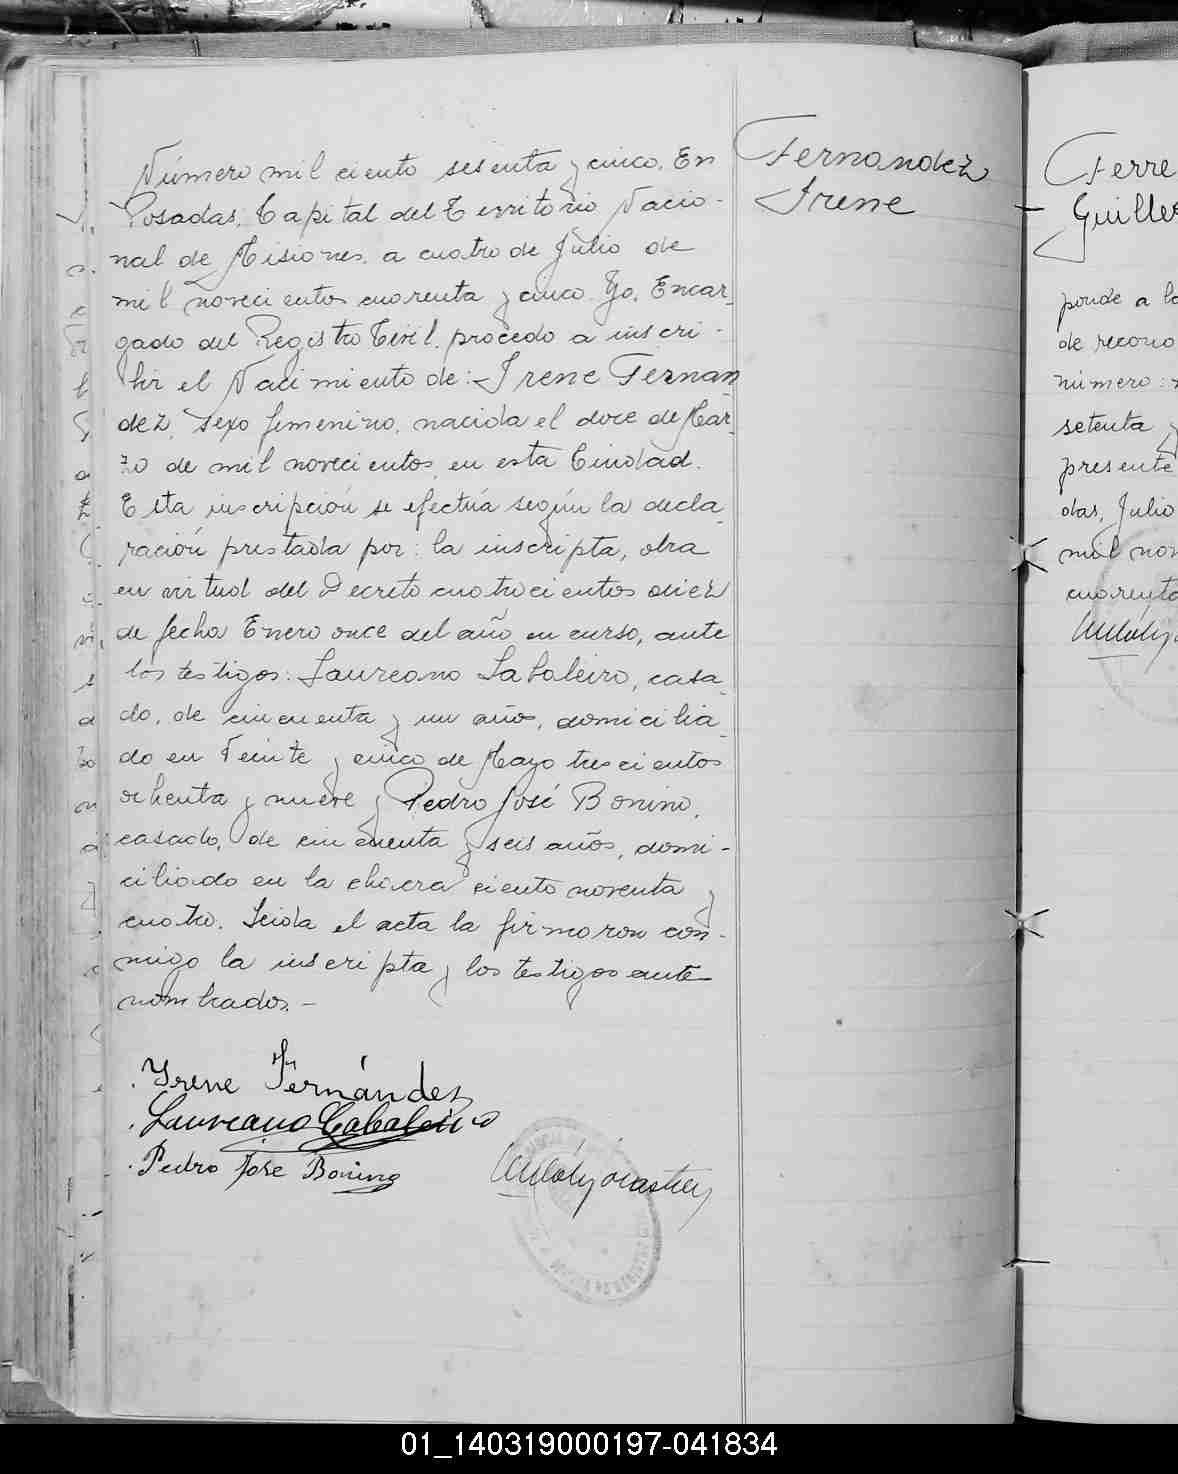 Fernandez
Irene
Número mil ciento sesenta y cinco. En
Posadas, Capital del Territorio Nacio-
nal de Misiones, a cuatro de Julio de
mil novecientos cuarenta y cinco. Yo, Encar-
gado del Registro Civil, procedo a inscri-
bir el Nacimiento de: Irene Fernan
dez, sexo femenino, nacida el doce de Mar-
zo de mil novecientos, en esta Ciudad.
Esta inscripción se efectúa según la decla-
ración prestada por: la inscripta, obra
en virtud del Decreto cuatrocientos diez
de fecha Enero once del año en curso, ante
los testigos: Laureano Cabaleiro, casa-
do, de cincuenta y un años, domicilia-
do en Veinte y cinco de Mayo trescientos
ochenta y nueve y Pedro José Bonino,
casado, de cincuenta y seis años, domi-
ciliado en la chacra ciento noventa y
cuatro. Leida el acta la firmaron con-
migo la inscripta y los testigos ante
nombrados.-
Irene Fernández
Laureano Cabaleiro
Pedro José Bonino
Ferre
Guille
ponde a la
de recono
número:
setenta y
presente
das, Julio
mil nov
cuarenta
01_140319000197-041834